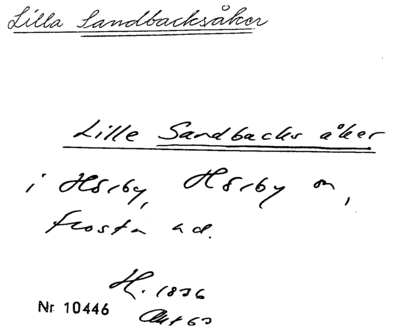 Lilla Sandbacksåker
Lille Sandbacks åker
i Hörby, Hörby sn,
Frosta hd.
H. 1836
Akt 63
Nr 10446